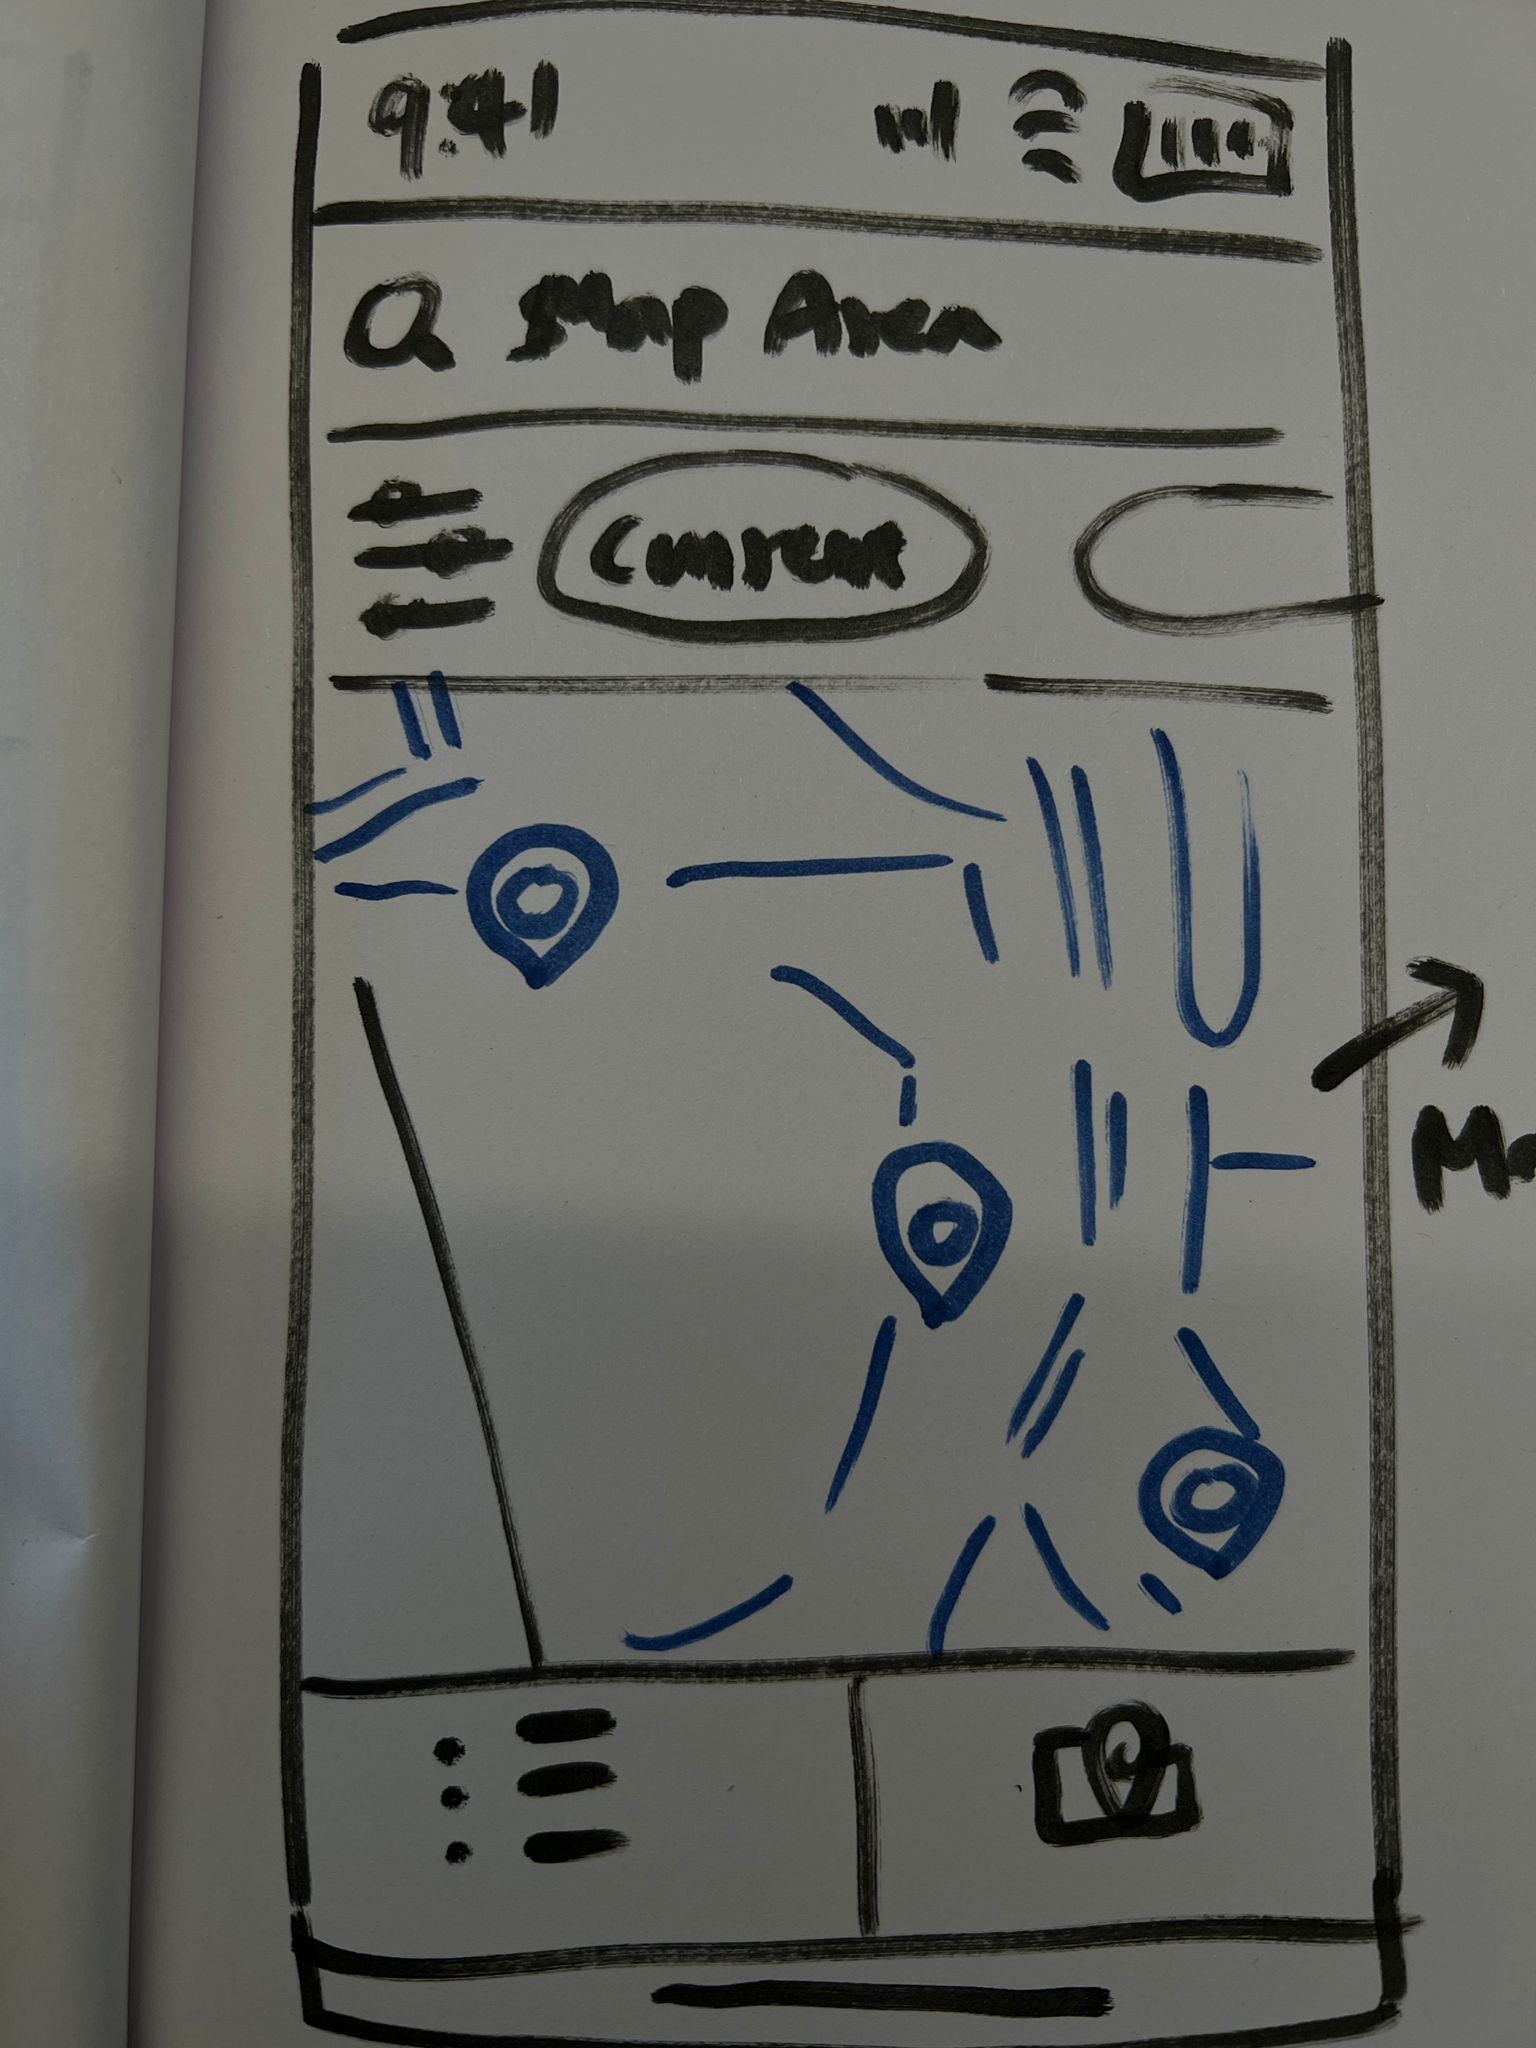 9:41
Map Area
Current